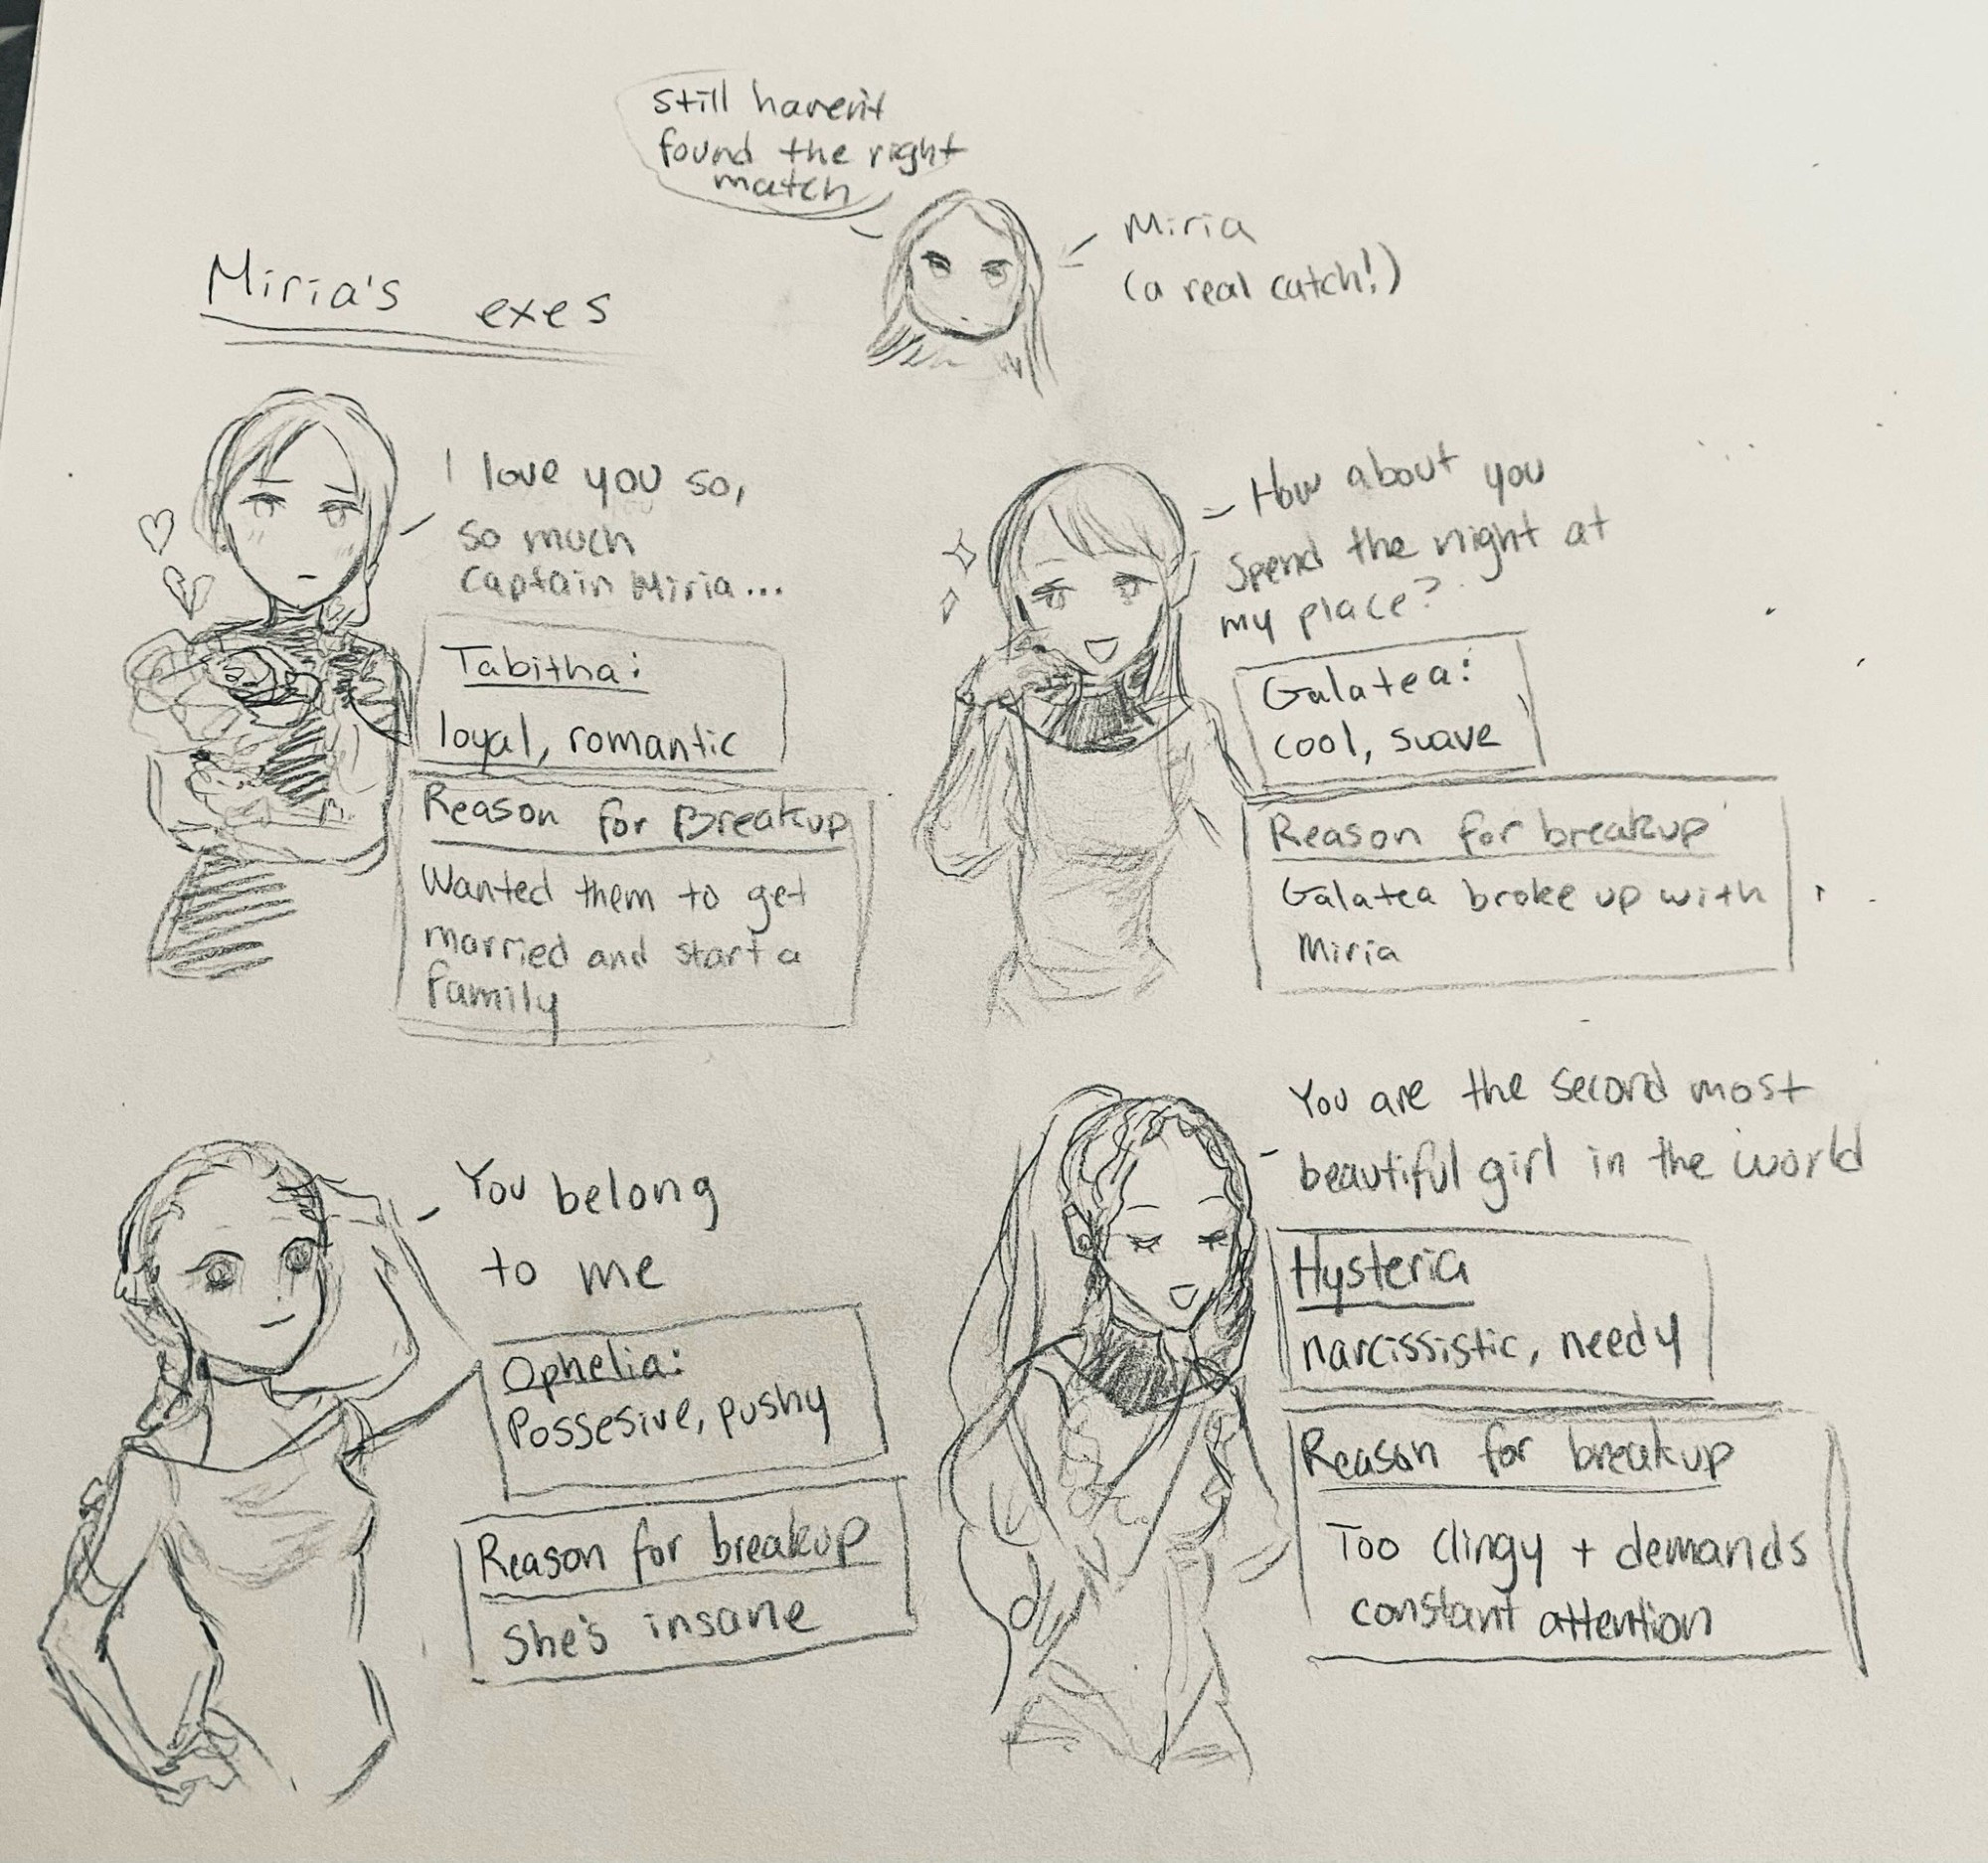 Still haven't
found the right
match
Miria
(a real catch!)
Miria's exes
I love you so,
so much
Captain Miria...
Tabitha:
loyal, romantic
Reason for Breakup
Wanted them to get
married and start a
family
How about you
spend the night at
my place?
Galatea:
cool, suave
Reason for breakup
Galatea broke up with
Miria
You belong
to me
Ophelia:
Possesive, pushy
Reason for breakup
She's insane
You are the second most
beautiful girl in the world
Hysteria
narcissistic, needy
Reason for breakup
Too clingy + demands
constant attention